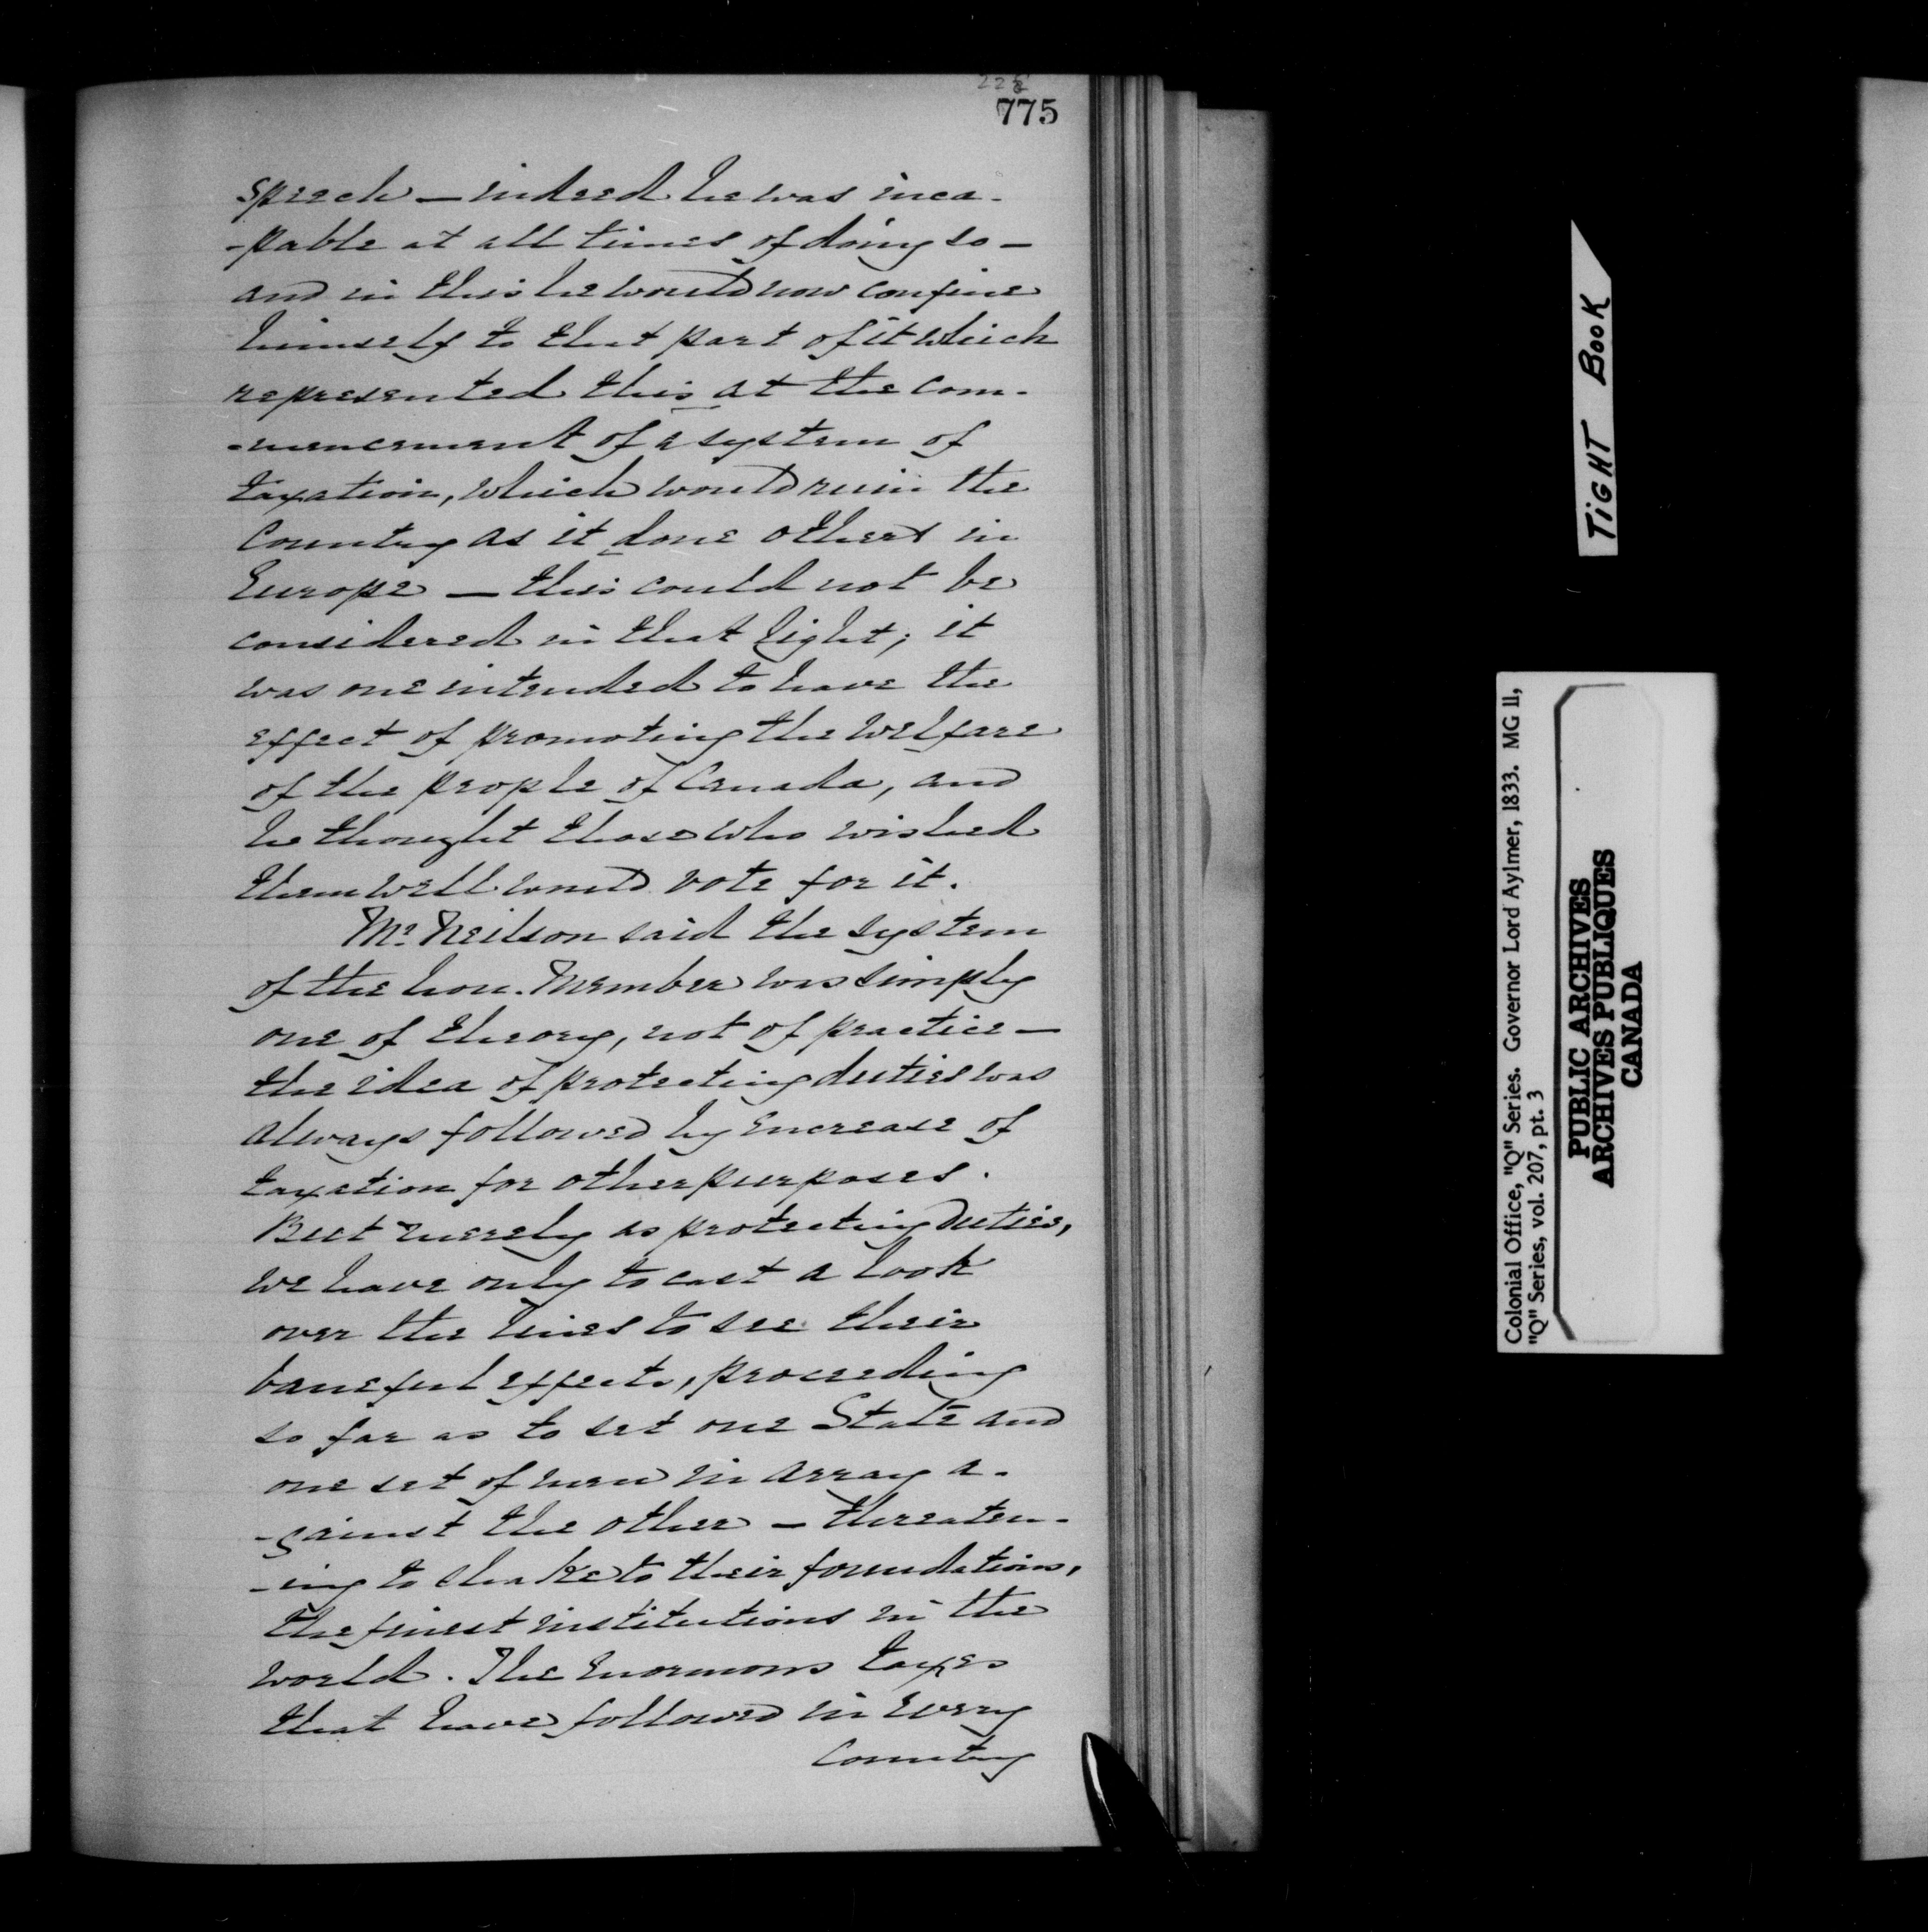 775
speech — indeed he was inca-
-pable at all times of doing so —
and in this he would now confine
himself to that part of it which
represented this at the com-
-mencement of a system of
taxation, which would ruin the
Country as it done others in
Europe — this could not be
considered in that light; it
was one intended to have the
effect of promoting the welfare
of the people of Canada, and
he thought those who wished
them well would vote for it.
Mr. Neilson said the system
of the hon. Member was simply
one of theory, not of practice —
the idea of protecting duties was
always followed by increase of
taxation for other purposes.
But merely as protecting duties,
we have only to cast a look
over the lines to see their
baneful effects, proceeding
so far as to set one State and
one set of men in array a-
-gainst the other — threaten-
-ing to shake to their foundations,
the finest institutions in the
world. The enormous taxes
that have followed in every
Country
TIGHT BOOK
Colonial Office, "Q" Series. Governor Lord Aylmer, 1833. MG 11,
"Q" Series, vol. 207, pt. 3
PUBLIC ARCHIVES
ARCHIVES PUBLIQUES
CANADA